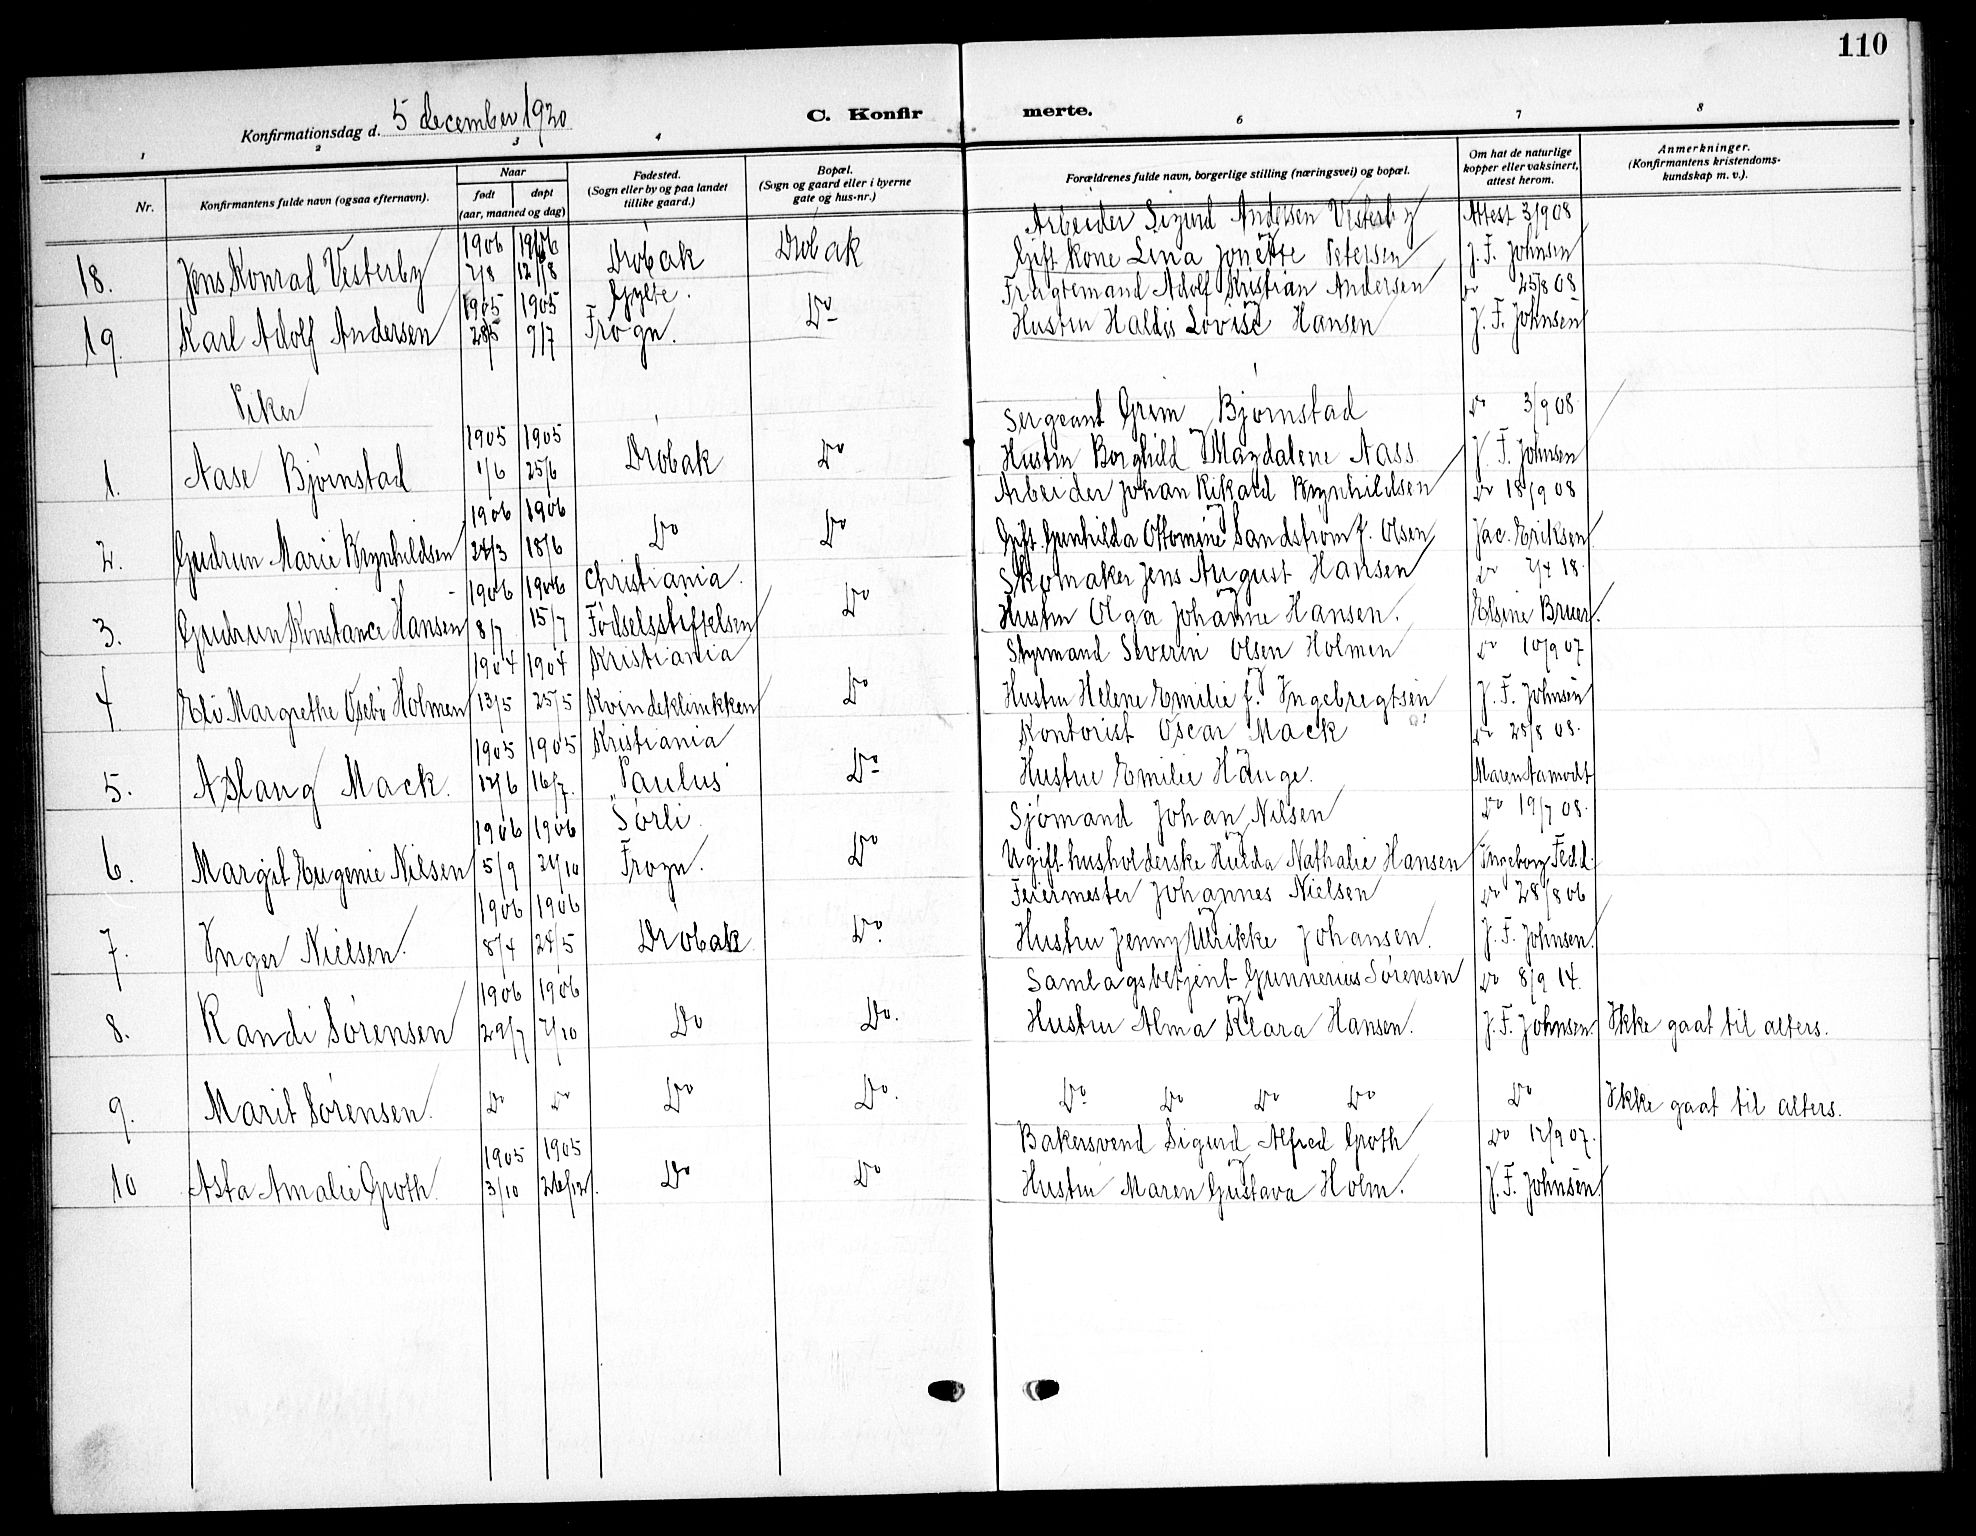 110
Konfirmationsdag d. 5 december 1920
C. Konfirmerte.
1 2 3 4 6 7 8
Nr.
Konfirmantens fulde navn (ogsaa efternavn).
Naar
født døpt
(aar, maaned og dag)
Fødested.
(Sogn eller by og paa landet
tillike gaard.)
Bopæl.
(Sogn og gaard eller i byerne
gate og hus-nr.)
Forældrenes fulde navn, borgerlige stilling (næringsvei) og bopæl.
Om hat de naturlige
kopper eller vaksinert,
attest herom.
Anmerkninger.
(Konfirmantens kristendoms-
kundskap m. v.).
1906 1906 Arbeider Sigurd Andersen Vesterby Attest 3/9 08
18. Jens Konrad Vesterby 7/8 12/8 Drøbak Drøbak Gift Kone Lina Jonette Petersen J. F. Johnsen
1905 1905 Gylte. Fragtemand Adolf Kristian Andersen Do 25/8 08
19. Karl Adolf Andersen 28/5 9/7 Frogn. Do Hustru Haldis Lovise Hansen J. F. Johnsen
Piker
1905 1905 Sergeant Grim Bjørnstad Do 3/9 08
1. Aase Bjørnstad 1/6 25/6 Drøbak Do Hustru Borghild Magdalene Aass J. F. Johnsen
1906 1906 Arbeider Johan Rikard Brynhildsen Do 18/9 08
2. Gudrun Marie Brynhildsen 24/3 18/6 Do Do Gift Gunhilda Ottomine Sandstrøm f. Olsen Jac. Eriksen
1906 1906 Christiania Skomaker Jens August Hansen Do 2/4 18.
3. Gudrun Konstance Hansen 8/7 15/7 Fødselsstiftelsen Do Hustru Olga Johanne Hansen. Elsine Bruer.
1904 1904 Kristiania Styrmand Severin Olsen Holmen Do 10/9 07
4 Eli Margrethe Osebø Holmen 13/5 25/5 Kvindeklinikken Do Hustru Helene Emilie f. Ingebregtsen J. F. Johnsen
1905 1905 Kristiania Kontorist Oscar Mack Do 25/8 08.
5. Aslaug Mack. 12/6 16/7. "Paulus" Do Hustru Emilie Hauge. Maren Aamodt
1906 1906 Sørli. Sjømand Johan Nilsen Do 19/7 08.
6. Margit Eugenie Nilsen 5/9 21/10 Frogn. Do Ugift husholderske Hulda Nathalie Hansen Ingeborg Fedd.
1906 1906 Feiermester Johannes Nielsen Do 28/8 06
7. Inger Nielsen. 8/4 24/5 Drøbak Do. Hustru Jenny Ulrikke Johansen. J. F. Johnsen.
1906 1906 Samlagsbetjent Gunnerius Sørensen Do 8/9 14.
8. Randi Sørensen 29/7 7/10 Do Do. Hustru Alma Klara Hansen. J. F. Johnsen Ikke gaat til alters.
9. Marit Sørensen. Do Do Do Do. Do Do Do Do Do Ikke gaat til alters.
1905 1905 Bakersvend Sigurd Alfred Groth Do 12/9 07.
10 Asta Amalie Groth 3/10 26/12. Do Do Hustru Maren Gustava Holm. J. F. Johnsen.